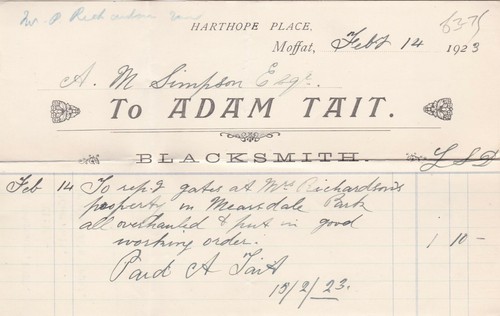 Mr. P Richardson
6375
HARTHOPE PLACE,
Moffat, Feby 14 1923
A. M Simpson Esqr.
To ADAM TAIT.
BLACKSMITH. L S D
Feb 14 To repg gates at Mrs Richardson's
property in Mearsdale Park
all overhauled & put in good
working order. 1 10 -
Paid A Tait
15/2/23.